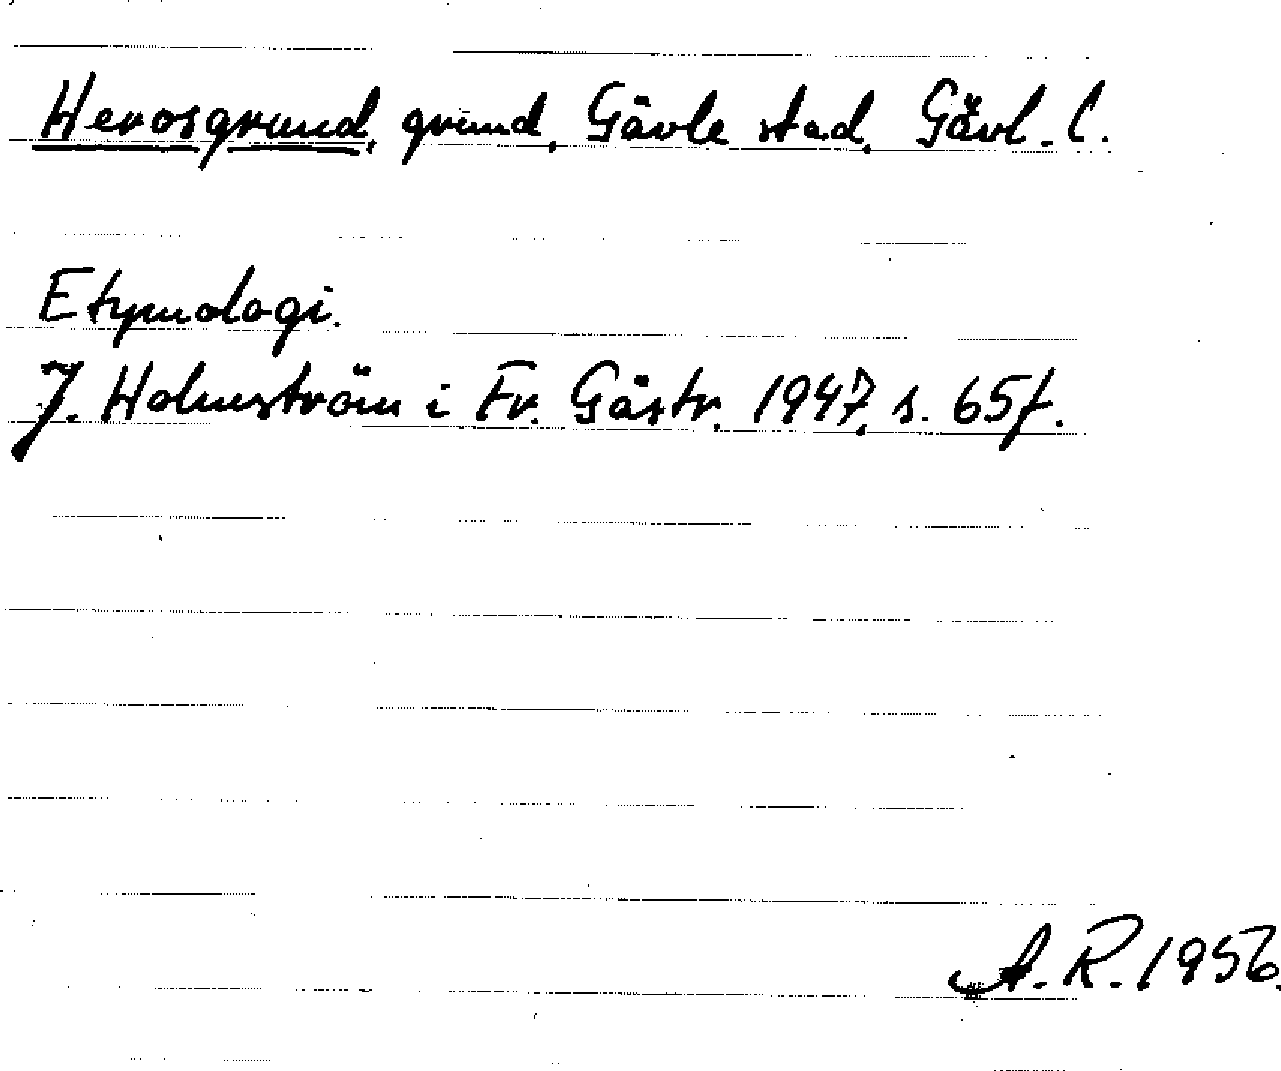 Herosgrund, grund, Gävle stad, Gävl. l.
Etymologi.
J. Holmström i Fr. Gästr. 1947, s. 65f.
A.R. 1956.